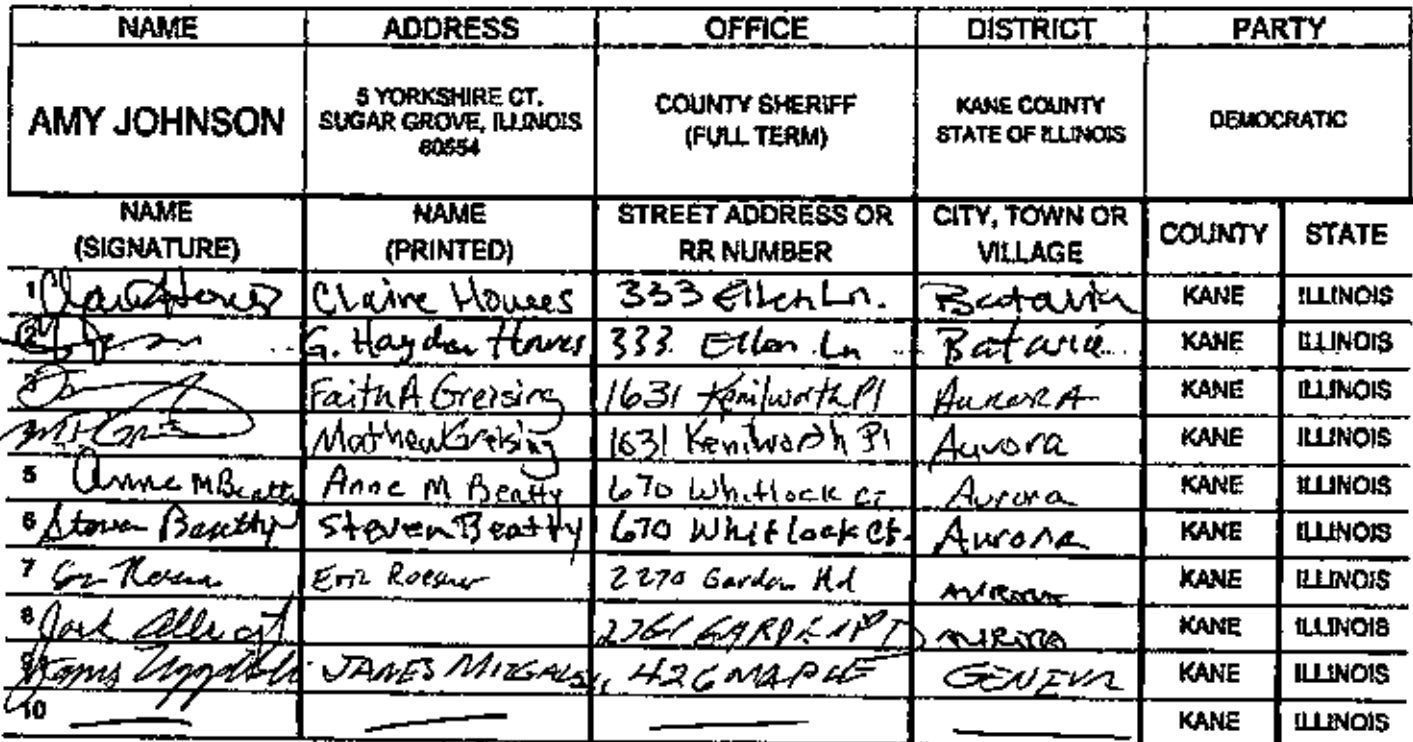 NAME ADDRESS OFFICE DISTRICT PARTY
AMY JOHNSON 5 YORKSHIRE CT. SUGAR GROVE, ILLINOIS 60554 COUNTY SHERIFF (FULL TERM) KANE COUNTY STATE OF ILLINOIS DEMOCRATIC
NAME (SIGNATURE) NAME (PRINTED) STREET ADDRESS OR RR NUMBER CITY, TOWN OR VILLAGE COUNTY STATE
1 Claire Howes 333 Ellen Ln. Batavia KANE ILLINOIS
G. Hayden Howes 333 Ellen Ln Batavia KANE ILLINOIS
3 Faith A Greising 1631 Kenilworth Pl Aurora KANE ILLINOIS
Mathew Greising 1631 Kenilworth Pl Aurora KANE ILLINOIS
5 Anne M Beatty Anne M Beatty 670 Whitlock Ct Aurora KANE ILLINOIS
6 Steven Beatty Steven Beatty 670 Whitlock Ct. Aurora KANE ILLINOIS
7 Eric 2270 Garden Rd Aurora KANE ILLINOIS
8 Jack KANE ILLINOIS
9 James JAMES 426 MAPLE GENEVA KANE ILLINOIS
10 KANE ILLINOIS